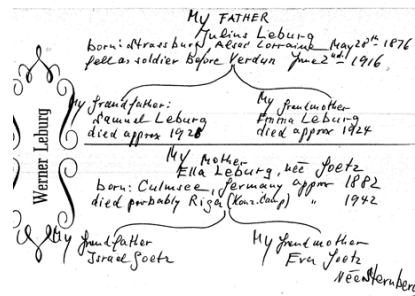 My FATHER
Julius Leburg
born: Strassburg, Alsac Lorraine May 28th 1876
fell as soldier before Verdun June 2nd 1916
My grandfather:
Samuel Leburg
died approx 1928
My grandmother
Emma Leburg
died approx 1924
Werner Leburg
My Mother
Ella Leburg, née Goetz
born: Culmsee, Germany approx 1882
died probably Riga (Konz. Camp) " 1942
My grandfather
Israel Goetz
My grandmother
Eva Goetz
née Sternberg